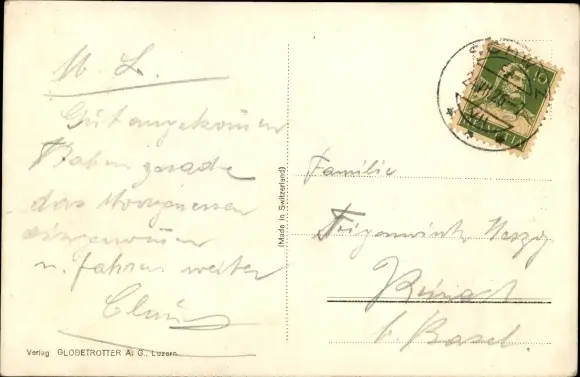 M. L.
Gut angekommen
Haben gerade
das Morgenessen
eingenommen
u. fahren weiter
Claus
Verlag GLOBETROTTER A. G., Luzern.
(Made in Switzerland)
10
HELVETIA
Familie
Herzog
Reinach
b. Basel.